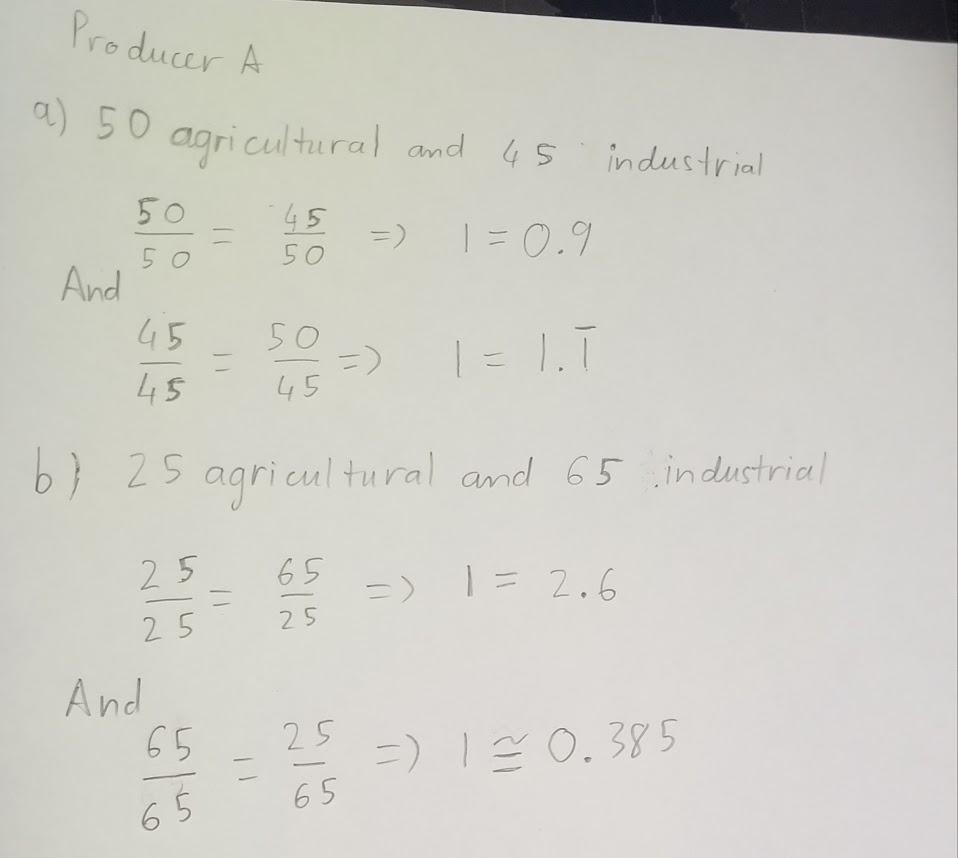 Producer A
a) 50 agricultural and 45 industrial
50/50 = 45/50 => 1 = 0.9
And
45/45 = 50/45 => 1 = 1.1̅
b) 25 agricultural and 65 industrial
25/25 = 65/25 => 1 = 2.6
And
65/65 = 25/65 => 1 ≅ 0.385